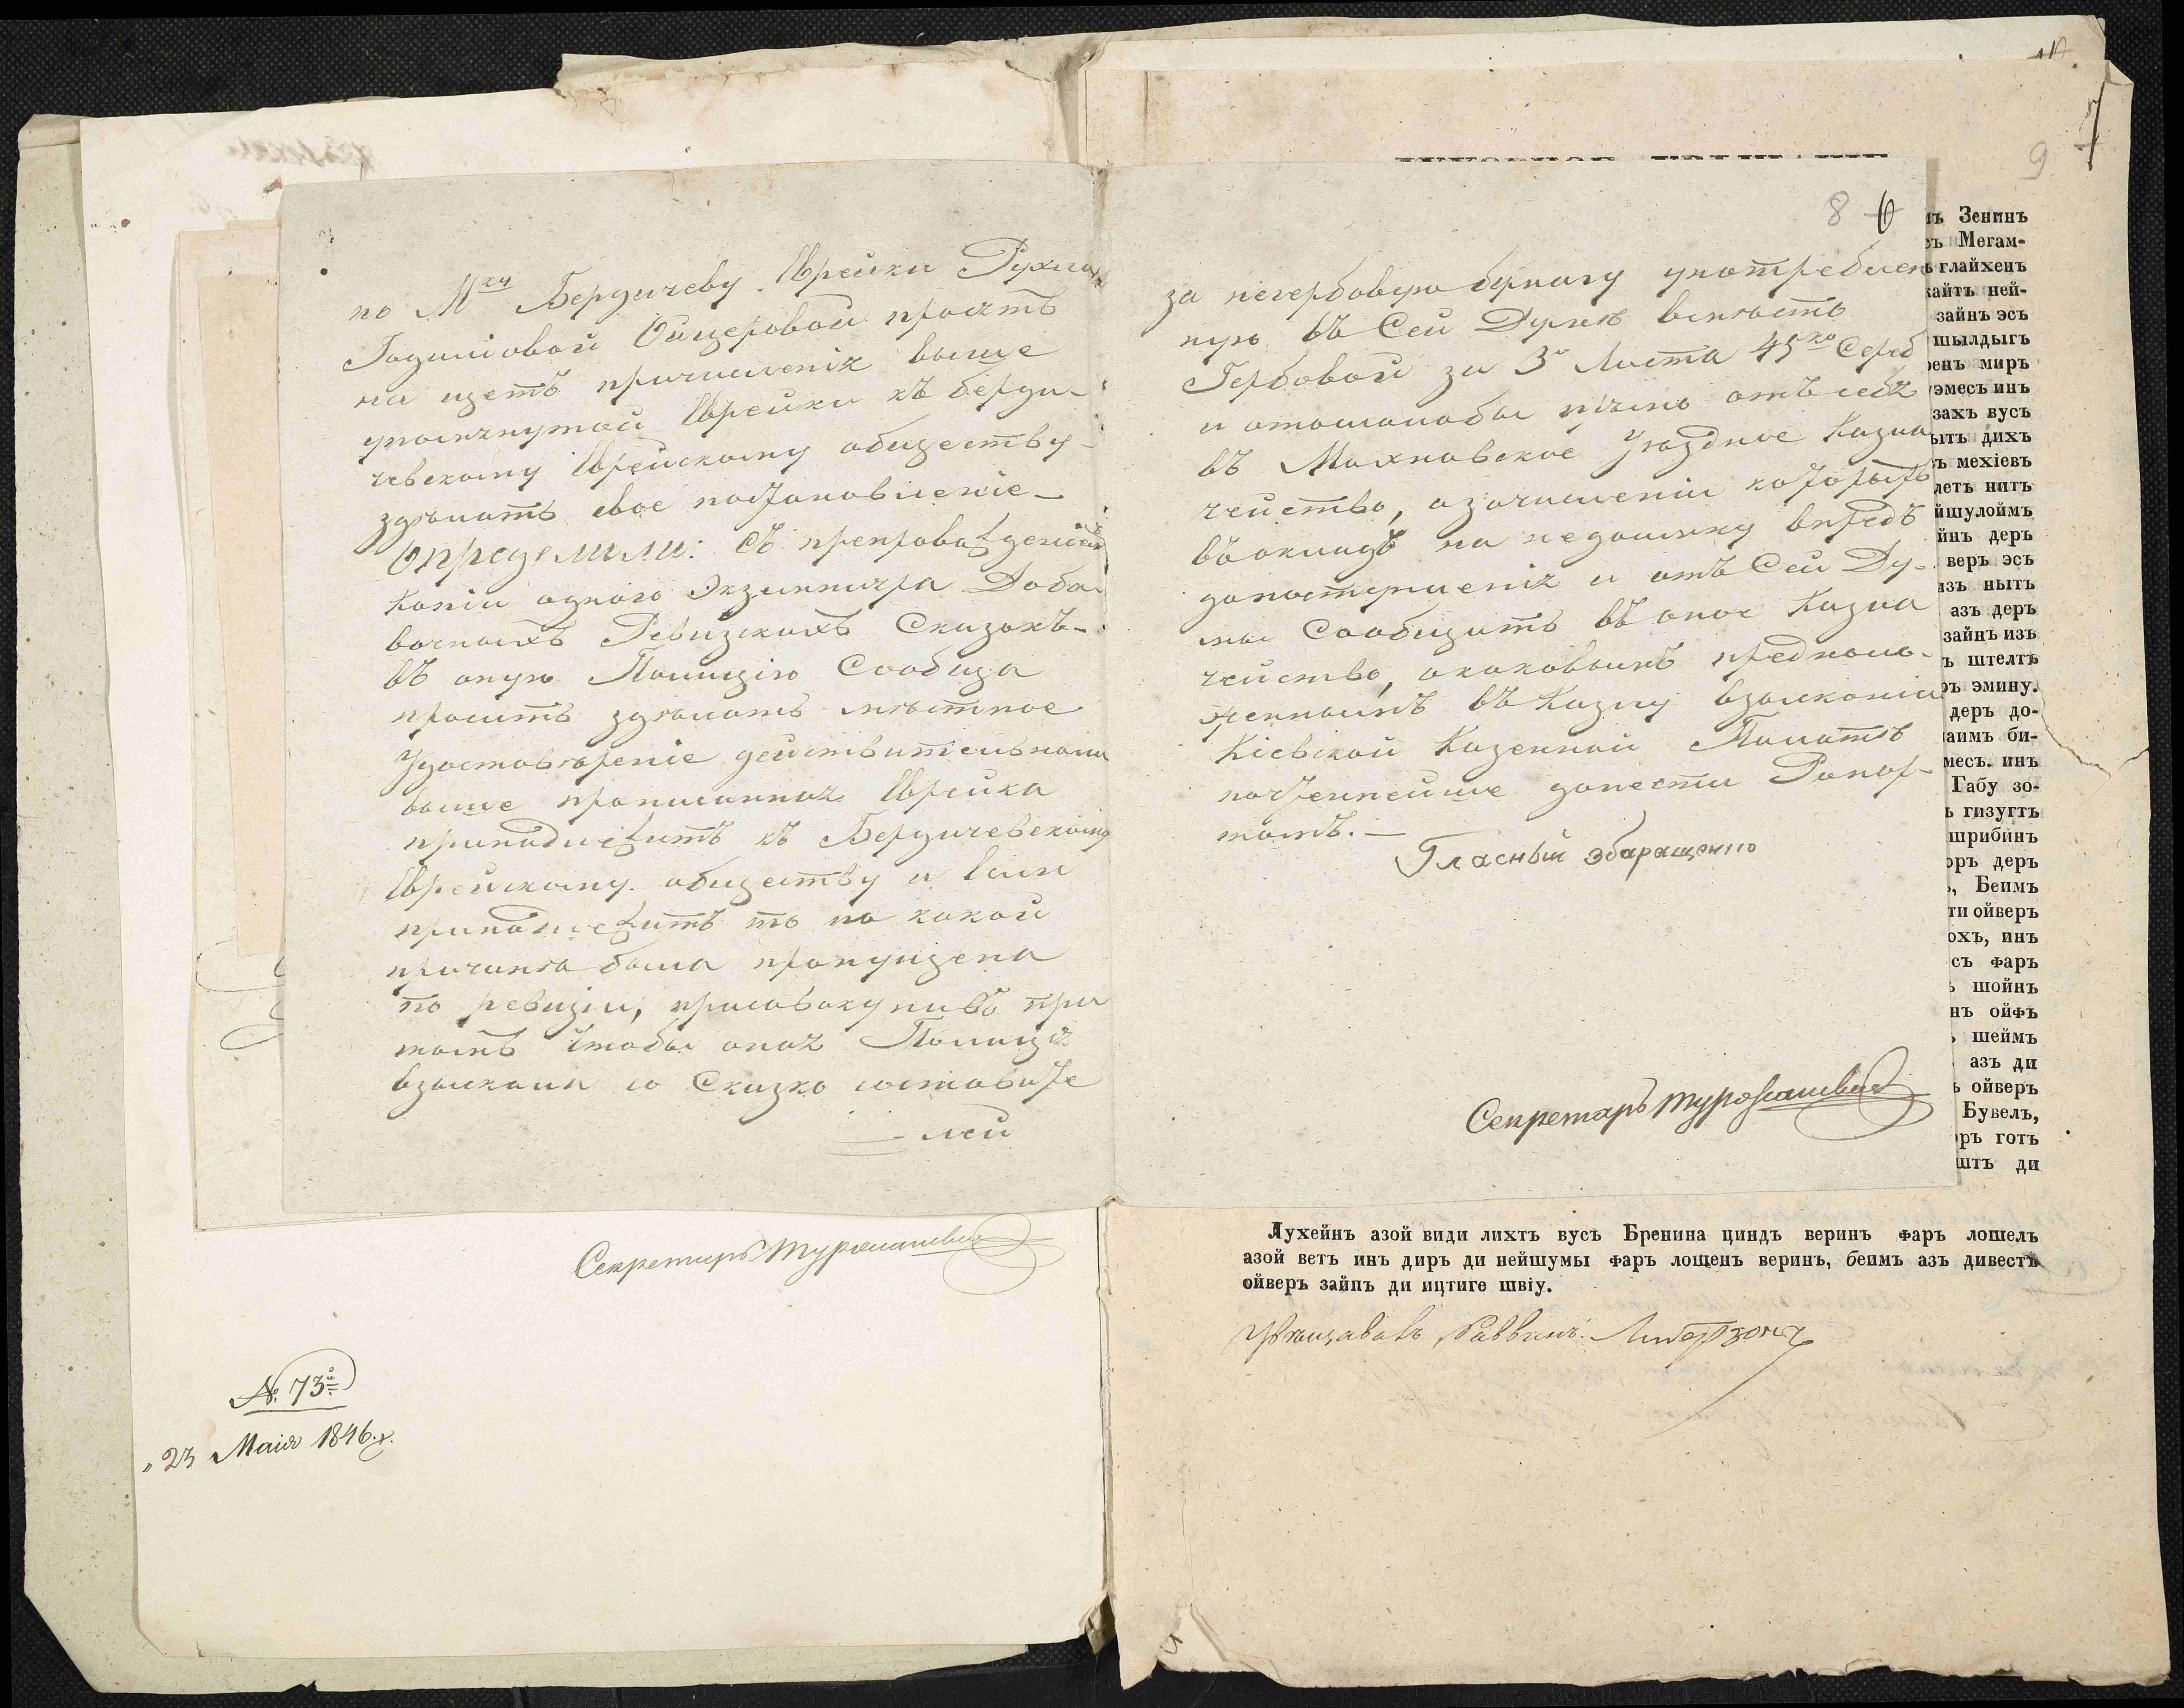 по М^ку Бердичеву Еврейки Рухли
Годилiовой Ойцеровой просить
на щетъ причисленiя выше
упомянутой Еврейки къ берди-
чевскому Еврейскому обществу
зделать свое постановленiе —
Определили: Съ препровожденiемъ
Копiи одного Экземпляра Доба-
вочныхъ Ревизскихъ Сказокъ
въ оную Полицiю Сообща
просить зделать местное
Удостоверенiе действительно ли
выше прописанная Еврейка
принадлежитъ къ Бердичевскому
Еврейскому обществу и Если
принадлежитъ то по какой
причине была пропущена
по ревизiи, присовокупивъ при
томъ Чтобы оная Полицiя
взыскала со Сказко составите
лей
8 6
за негербовую бумагу употреблен
ную въ Сей Думе вместо
Гербовой за 3 Листа 45 ко Сереб
и отослалабы прямо отъ себя
въ Махновское Уездное Казна
чейство, о зачисленiи которыхъ
въ окладъ на недоимку впредь
до поступленiя и отъ Сей Ду-
мы Сообщить въ оное Казна
чейство, о каковымъ предполо-
женнымъ въ Казну взысканiи
Кiевской Казенной Палате
почтеннейше донести Рапор-
томъ. —
Гласный Збаращенко
Секретарь
Секретарь
№. 73й
„23 Маiя 1846.г.
9 7
ъ Зенинъ
ъ Мегам-
ь глайхенъ
кайтъ ней-
зайнъ эсъ
шылдыгъ
енъ миръ
эмесъ инъ
захъ вусъ
ытъ дихъ
ъ мехiевъ
летъ нитъ
йшулоймъ
йнъ деръ
веръ эсъ
изъ нытъ
азъ деръ
зайнъ изъ
ъ штелтъ
ръ эмину.
деръ до-
аимъ би-
месъ. инъ
Габу зо-
ь гизугтъ
шрибинъ
оръ деръ
, Беимъ
ти ойверъ
охъ, инъ
съ фаръ
ь шойнъ
нъ ойфъ
шеймъ
азъ ди
ь ойверъ
Бувелъ,
ръ готъ
штъ ди
Лухейнъ азой види лихтъ вусъ Бренина циндъ веринъ фаръ лошелъ
азой ветъ инъ диръ ди нейшумы фаръ лощенъ веринъ, беимъ азъ дивестъ
ойверъ зайнъ ди ицтиге швiу.
Увещавалъ Раввинъ. Либерзонъ